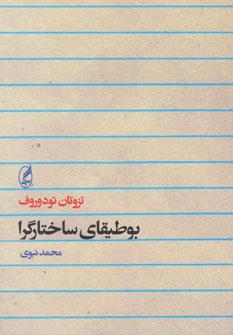 تزوتان تودوروف
بوطیقای ساختارگرا
محمد نبوی